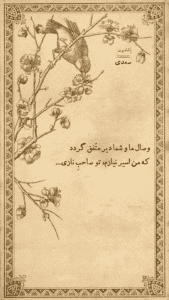 سعدی
وصال ما و شما دیر متّفق گردد
که من اسیر نیازم، تو صاحب نازی...